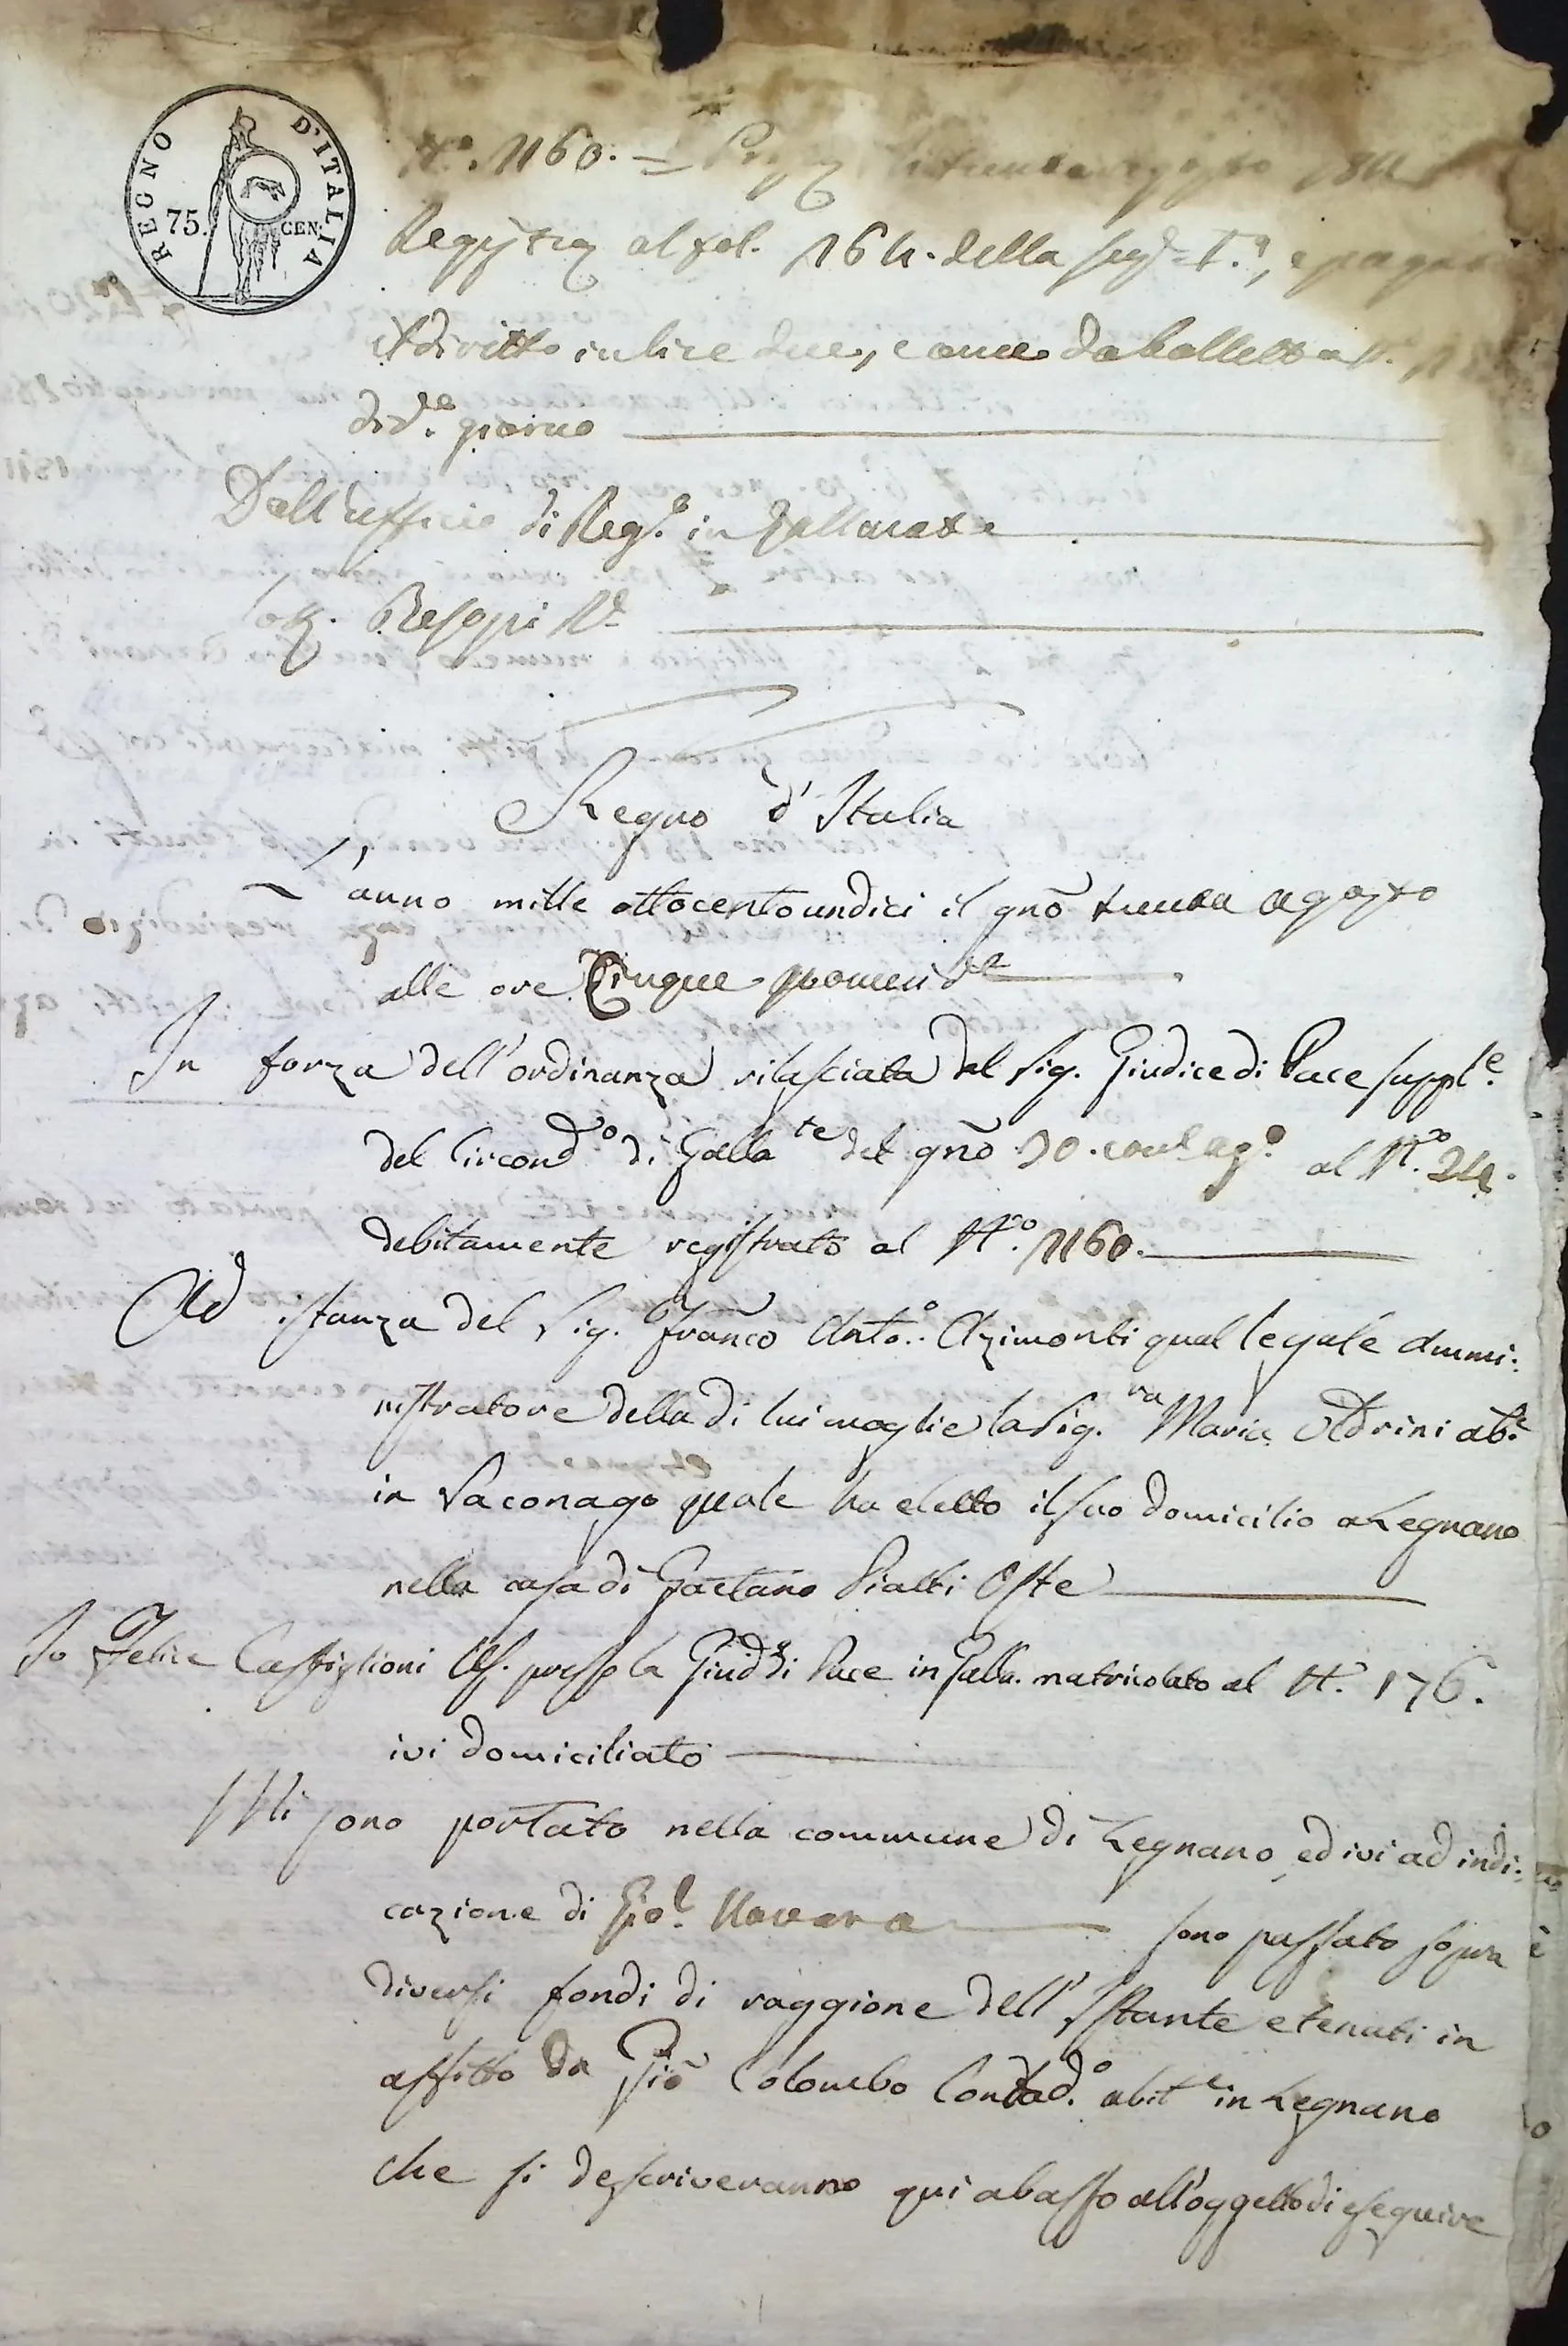 REGNO D'ITALIA
75. CEN.
N.º 1160. =
al fol. 164. della
il diritto in lire due, come da bolletta N.
di dº. giorno
Dall'Ufficio di Regº. in Gallarate
Regno d'Italia
L'anno mille ottocento undici il gnõ trenta agosto
alle ore Cinque pomerid.ne
In forza dell'ordinanza rilasciata dal Sig. Giudice di Pace suppl.e
del Circond.º di Galla.te del gnõ 30. agº. al N.º 24.
debitamente registrato al N.º 1160.
Ad istanza del Sig. Franco Antº. Azimonti qual legale ammi:
nistratore della di lui moglie la Sig.ra Maria ab.e
in Saconago quale ha eletto il suo domicilio a Legnano
nella casa di Gaetano Pialti Oste
Io Felice Castiglioni Us. presso la Giud.a di Pace in Galla. matricolato al N. 176.
ivi domiciliato
Mi sono portato nella commune di Legnano, ed ivi ad indi:
cazione di Novara sono passato sopra
diversi fondi di raggione dell'Istante e tenuti in
affitto da Giõ Colombo Contad.º abit.e in Legnano
che si descriveranno qui abasso all'oggetto di eseguire